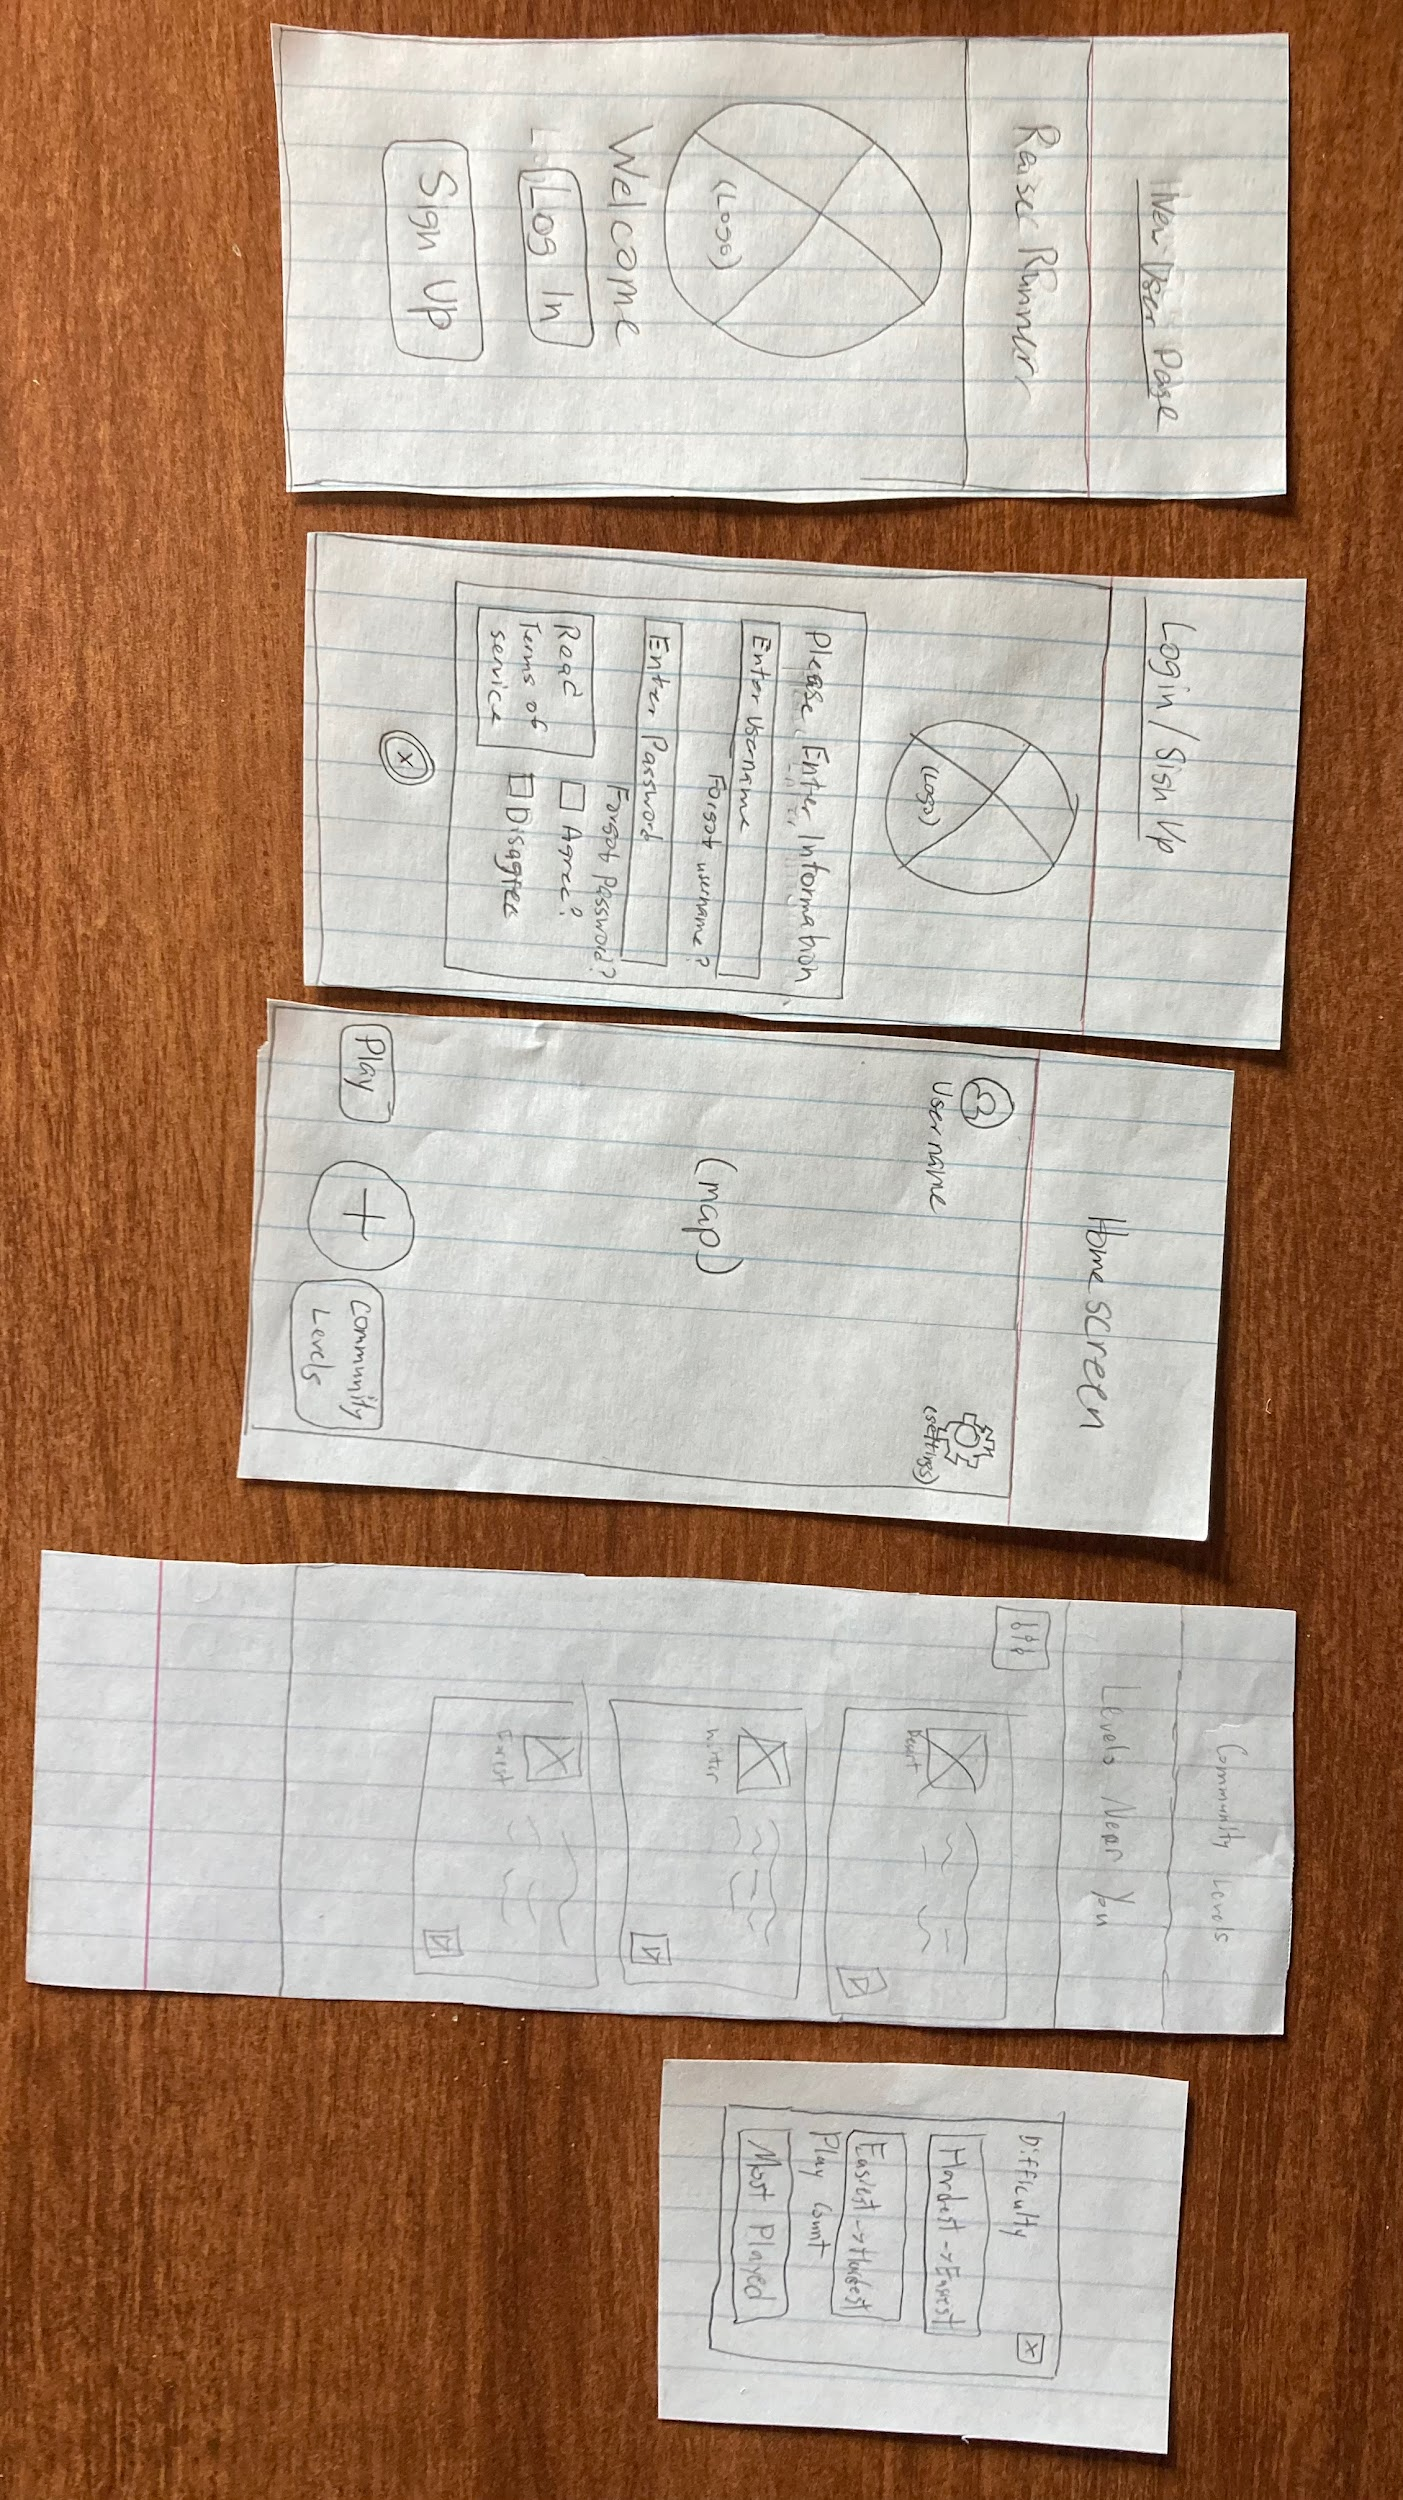 New User Page
Raiser Runner
(Logo)
Welcome
Log In
Sign Up
Login / Sign Up
(Logo)
Please Enter Information
Enter Username
Forgot username?
Enter Password
Forgot Password?
Read
Terms of
service
Agree?
Disagree
X
Home screen
Username
(settings)
(map)
Play
+
Community
Levels
Community Levels
Levels Near You
Desert
Winter
Forest
Difficulty
X
Hardest -> Easiest
Easiest -> Hardest
Play Count
Most Played